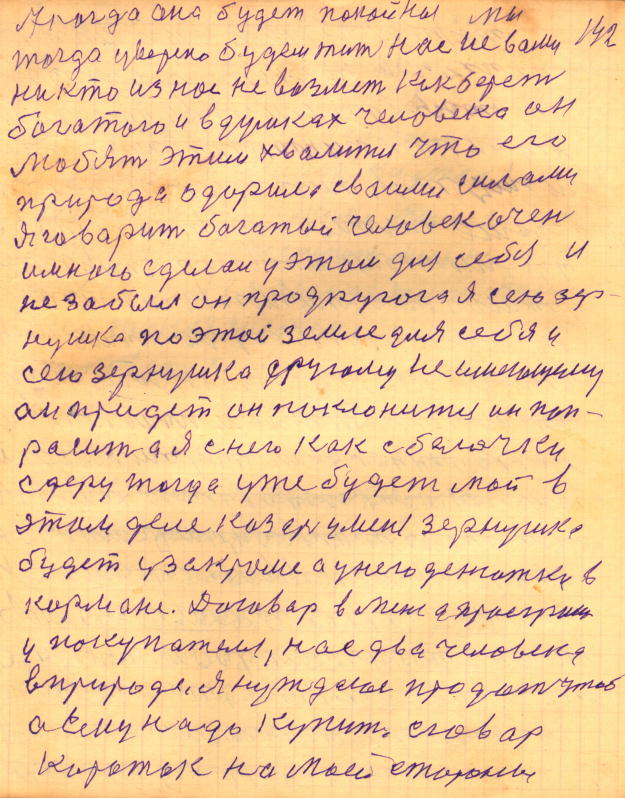 А когда она будет покойны мы 142
тогда уверено будем тит нас не вами
никто из нас не возмет как берет
богатого и в душках человека он
любят этим хвалится что его
природа одорила своими силами
Я говарит богатый человек очен
и много сделал у этом для себя и
не забыл он про другога я сею зер-
нушка по этой земле для себя и
сею зернушка другому не имеющему
он придет он поклонится он поп-
расит а я с него как с балочки
сдеру тогда уже будет мой в
этом деле козер у меня зернушка
будет у закроме а у него денюжки в
кормане. Договар в меня
и покупателя, нас два человека
в природе. Я нуждаюс продат чтоб
а ему надо купит. сговар
кароток на моей стороны